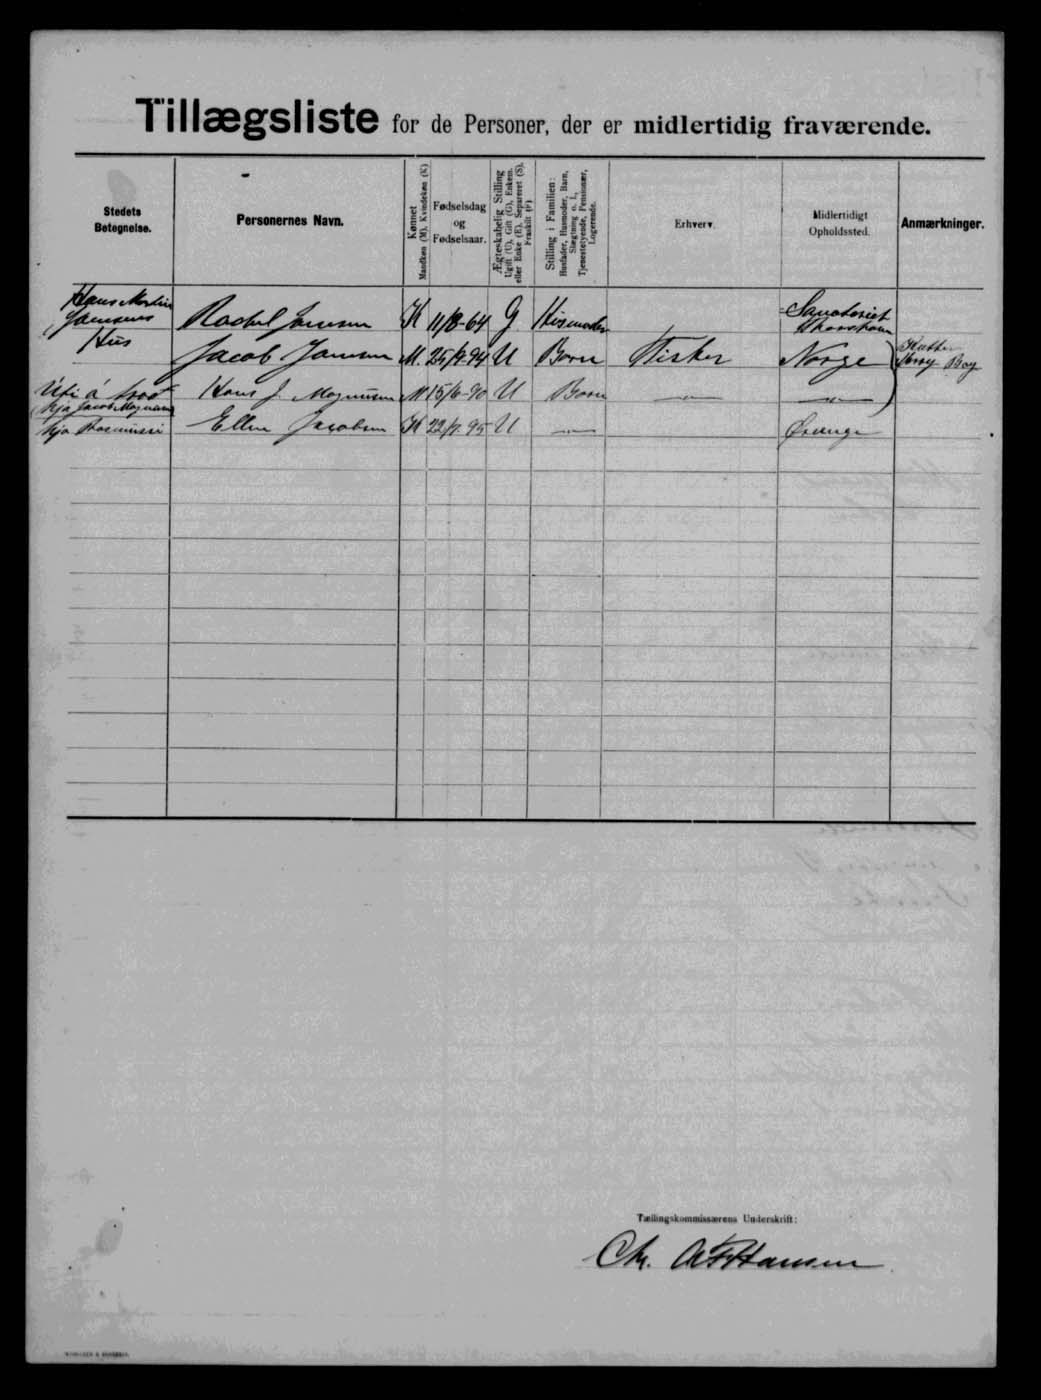 Tillægsliste for de Personer, der er midlertidig fraværende.
Stedets Betegnelse.
Personernes Navn.
Kønnet
Mandkøn (M), Kvindekøn (K)
Fødselsdag og Fødselsaar.
Ægteskabelig Stilling
Ugift (U), Gift (G), Enkem. eller Enke (E), Separeret (S), Fraskilt (F)
Stilling i Familien:
Husfader, Husmoder, Barn, Slægtning o. l., Tjenestetyende, Pensionær, Logerende.
Erhverv.
Midlertidigt Opholdssted.
Anmærkninger.
Hans Martin Joensens Hus
Rachel Joensen K 11/8-64 G Husmoder Sanatoriet Thorshavn
Jacob Joensen M. 25/7-94 U Barn Fisker Norge
Hans J. Magnussen M 15/6-90 U Barn -„- -„-
Ellen Jacobsen K 22/7-95 U -„-
Tællingskommissærens Underskrift:
Chr. Hansen